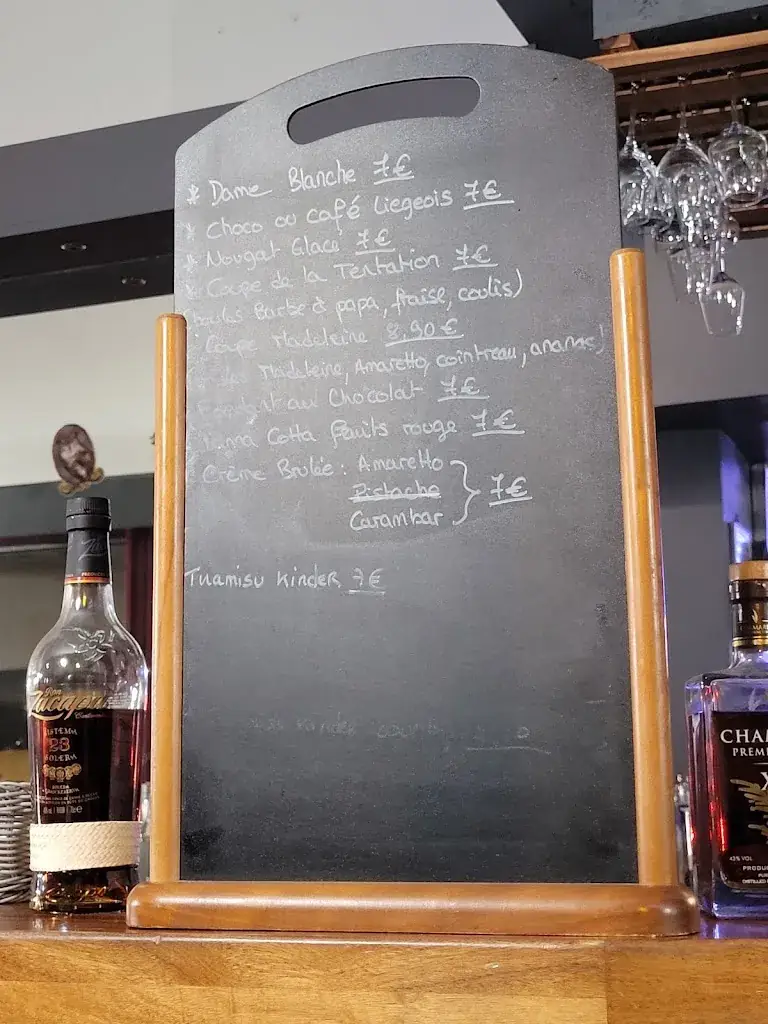 * Dame Blanche 7€
* Choco ou café Liegeois 7€
* Nougat Glacé 7€
* Coupe de la Tentation 7€
boules Barbe à papa, fraise, coulis)
Coupe Madeleine 8,90€
Madeleine, Amaretto, cointreau, ananas)
au Chocolat 7€
Cotta fruits rouge 7€
Crème Brulée : Amaretto
Pistache
Carambar
7€
Tiramisu Kinder 7€
Ron
Zacapa
Centenario
SISTEMA
23
SOLERA
CHAM
PREMI
X
43% VOL
PRODU